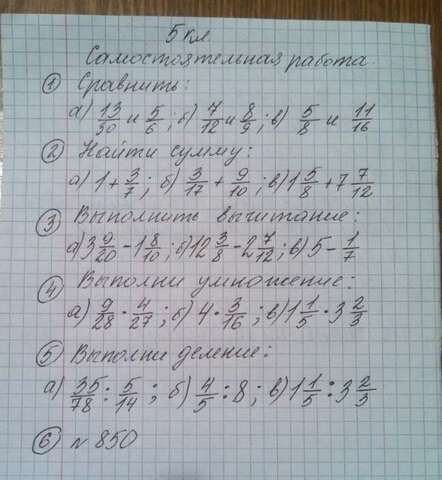 5 кл
Самостоятельная работа.
① Сравнить:
а) 13/30 и 5/6; б) 7/12 и 8/9; в) 5/8 и 11/16
② Найти сумму:
а) 1 + 3/7; б) 3/17 + 9/10; в) 1 5/8 + 7 7/12
③ Выполнить вычитание:
а) 3 9/20 - 1 8/10; б) 12 3/8 - 2 7/12; в) 5 - 1/7
④ Выполни умножение:
а) 9/28 · 4/27; б) 4 · 3/16; в) 1 1/5 · 3 2/3
⑤ Выполни деление:
а) 35/78 : 5/14; б) 4/5 : 8; в) 1 1/5 : 3 2/3
⑥ № 850